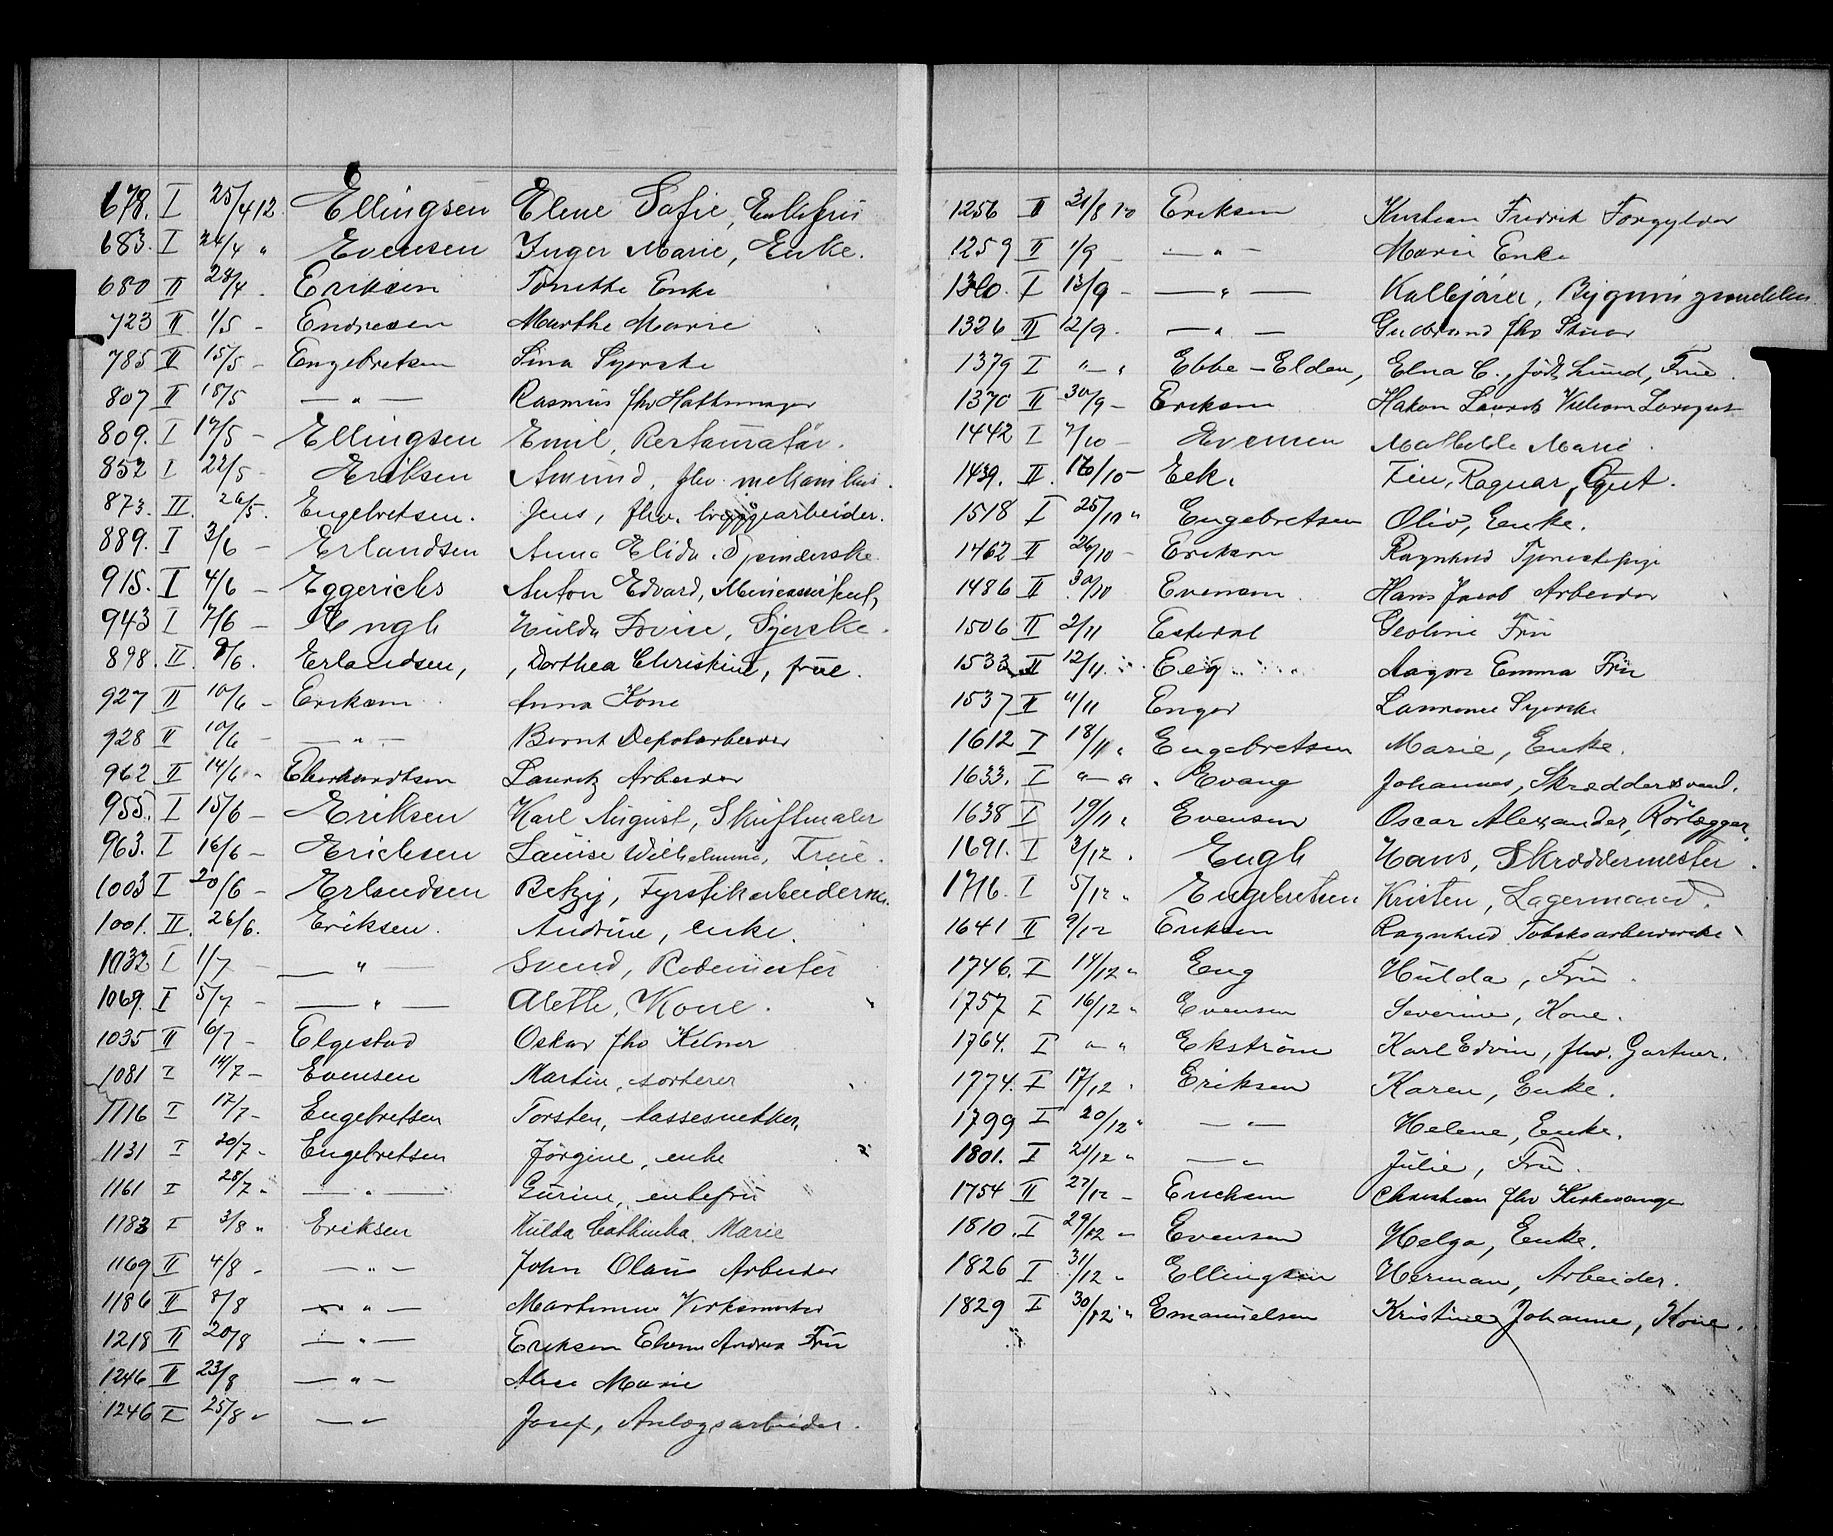 678. I 25/4 12. Ellingsen Elene Sofie, Enkefru
683. I 24/4 " Evensen Inger Marie, Enke.
680 II 28/4 - Eriksen Tonette Enke
723 II 1/5 - Endresen Marthe Marie
785 II 15/5 - Engebretsen Lina Syerske
807 II 15/5 — " — Rasmus fhv Hattemager
809. I 17/5 - Ellingsen Emil, Restauratør.
852 I 22/5 - Eriksen Amund, fhv. mekanikus.
873. II. 26/5. Engebretsen. Jens, fhv. bryggearbeider.
889. I 3/6 - Erlandsen Anna Elida. Spinderske
915. I 4/6 - Eggerichs Anton Edvard,
943 I 7/6 - Engh Hulda Lovise, Syerske.
898. II. 9/6. Erlandsen, Dorthea Christine, frue.
927 II 10/6 - Eriksen Anna Kone
928 II 10/6 - — " — Bernt Depotarbeider
962 II 14/6 - Eberhardtsen Lauritz Arbeider
955. I 15/6 - Eriksen Karl August, Skiltmaler
963. I 16/6 - Erichsen Louise Wilhelmine, Frue.
1003 I 20/6 - Erlandsen Betzy, Fyrstikarbeiderske.
1001. II. 26/6. Eriksen. Andrine, enke.
1032 I 1/7 - — " — Svend, Rodemester
1069. I 5/7 - — " — Alette, Kone.
1035 II 6/7 - Elgestad Oskar fhv Kelner
1081 I 14/7 - Evensen Martin, sorterer
1116 I 17/7 - Engebretsen Torsten,
1131 I 20/7 - Engebretsen Jörgine, enke
1161 I 28/7 " — " — Gurine, enkefru
1183 I 3/8 " Eriksen Hulda Cathinka Marie
1169 II 4/8 - — " — John Olaus Arbeider
1186 II 8/8 — " — Martinius Verksmester
1218 II 20/8 — " — Eriksen Andrea Fru
1246 II 23/8 — " — Alice Marie
1246 I 25/8 " — " Josef, Anlægsarbeider.
1256 II 31/8 Eriksen Kristian Fredrik Forgylder
1259 II 1/9 - — " — Marie Enke
1300. I 13/9 - — " —
1326 II 12/9. — " — Gudbrand fhv
1379 I " — " Ebbe - Elden, Elna C., född Lund, Frue.
1370 II 30/9 - Eriksen Hakon Lauritz
1442 I 7/10 - Evensen Mathilde Marie.
1439. II. 16/10 - Eek. Finn, Ragnar, Gut.
1518 I 25/10 " Engebretsen Oliv, Enke.
1462 II 26/10 - Eriksen Ragnhild Tjenestepige
1486 II 30/10 Evensen Hans Jacob Arbeider
1506 II 2/11 Esterol Geoline Fru
1533 II 12/11 Eeg Aagot Emma Fru
1537 II 11/11 Enger Laurense Syerske
1612 I 18/11 " Engebretsen Marie, Enke.
1633. I " — " Evang Johannes, Skræddersvend.
1638 I 19/11 " Evensen Oscar Alexander, Rörlægger.
1691. I 3/12 " Engh Hans, Skræddermester.
1716. I 5/12 " Engebretsen Kristen, Lagermand.
1641 II 9/12 Eriksen Ragnhild Tobaksarbeiderske
1746. I 14/12 " Eng Hulda, Fru.
1757 I 16/12 " Evensen Severine, Kone.
1764. I " — " Ekström Karl Edvin, fhv. Gartner.
1774. I 17/12 " Eriksen Karen, Enke.
1799 I 20/12 " — " — Helene, Enke.
1801. I 21/12 " — " Julie, Fru.
1754 II 27/12 - Erichsen Christian fhv
1810. I 29/12 " Evensen Helga, Enke.
1826 I 31/12 " Ellingsen Herman, Arbeider.
1829 I 30/12 " Emanuelsen Kristine Johanne, Kone.